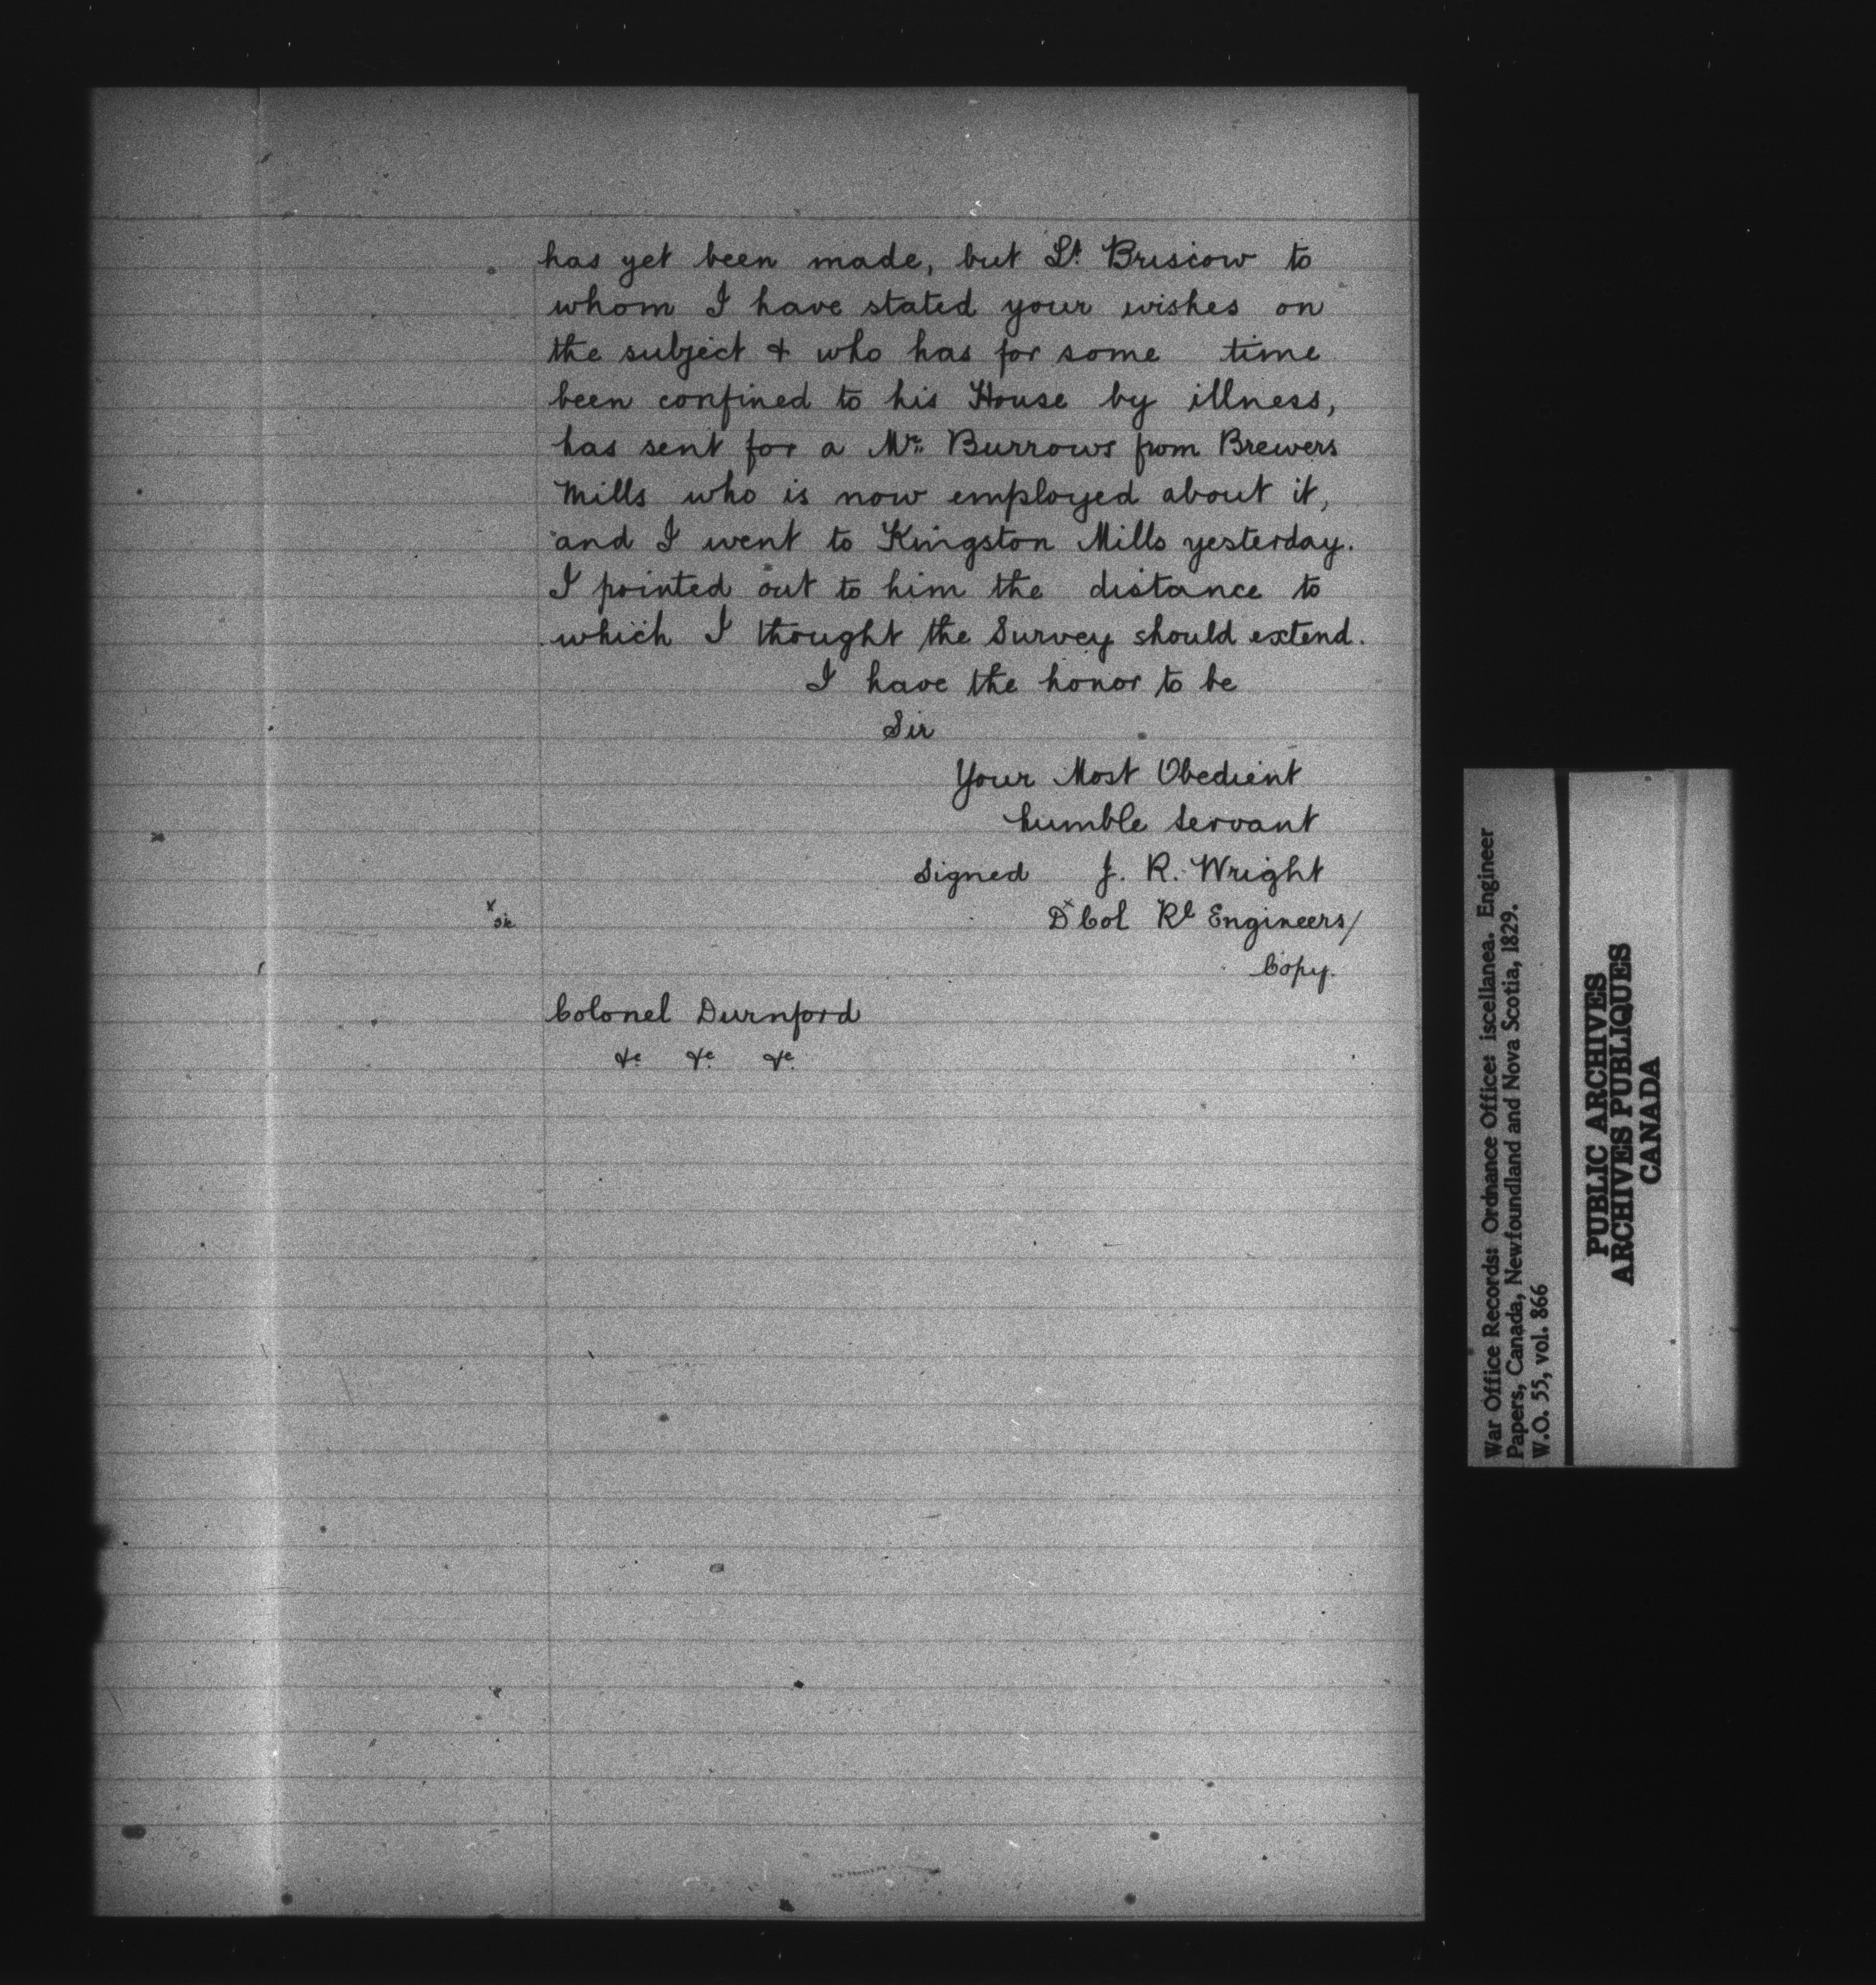 has yet been made, but Lt. Briscow to
whom I have stated your wishes on
the subject & who has for some time
been confined to his House by illness,
has sent for a Mr. Burrows from Brewers
Mills who is now employed about it,
and I went to Kingston Mills yesterday.
I pointed out to him the distance to
which I thought the Survey should extend.
I have the honor to be
Sir
Your Most Obedient
humble servant
Signed J. R. Wright
x sic
Dx Col Rl Engineers/
Copy.
Colonel Durnford
&c. &c. &c.
War Office Records: Ordnance Office: iscellanea. Engineer
Papers, Canada, Newfoundland and Nova Scotia, 1829.
W.O. 55, vol. 866
PUBLIC ARCHIVES
ARCHIVES PUBLIQUES
CANADA